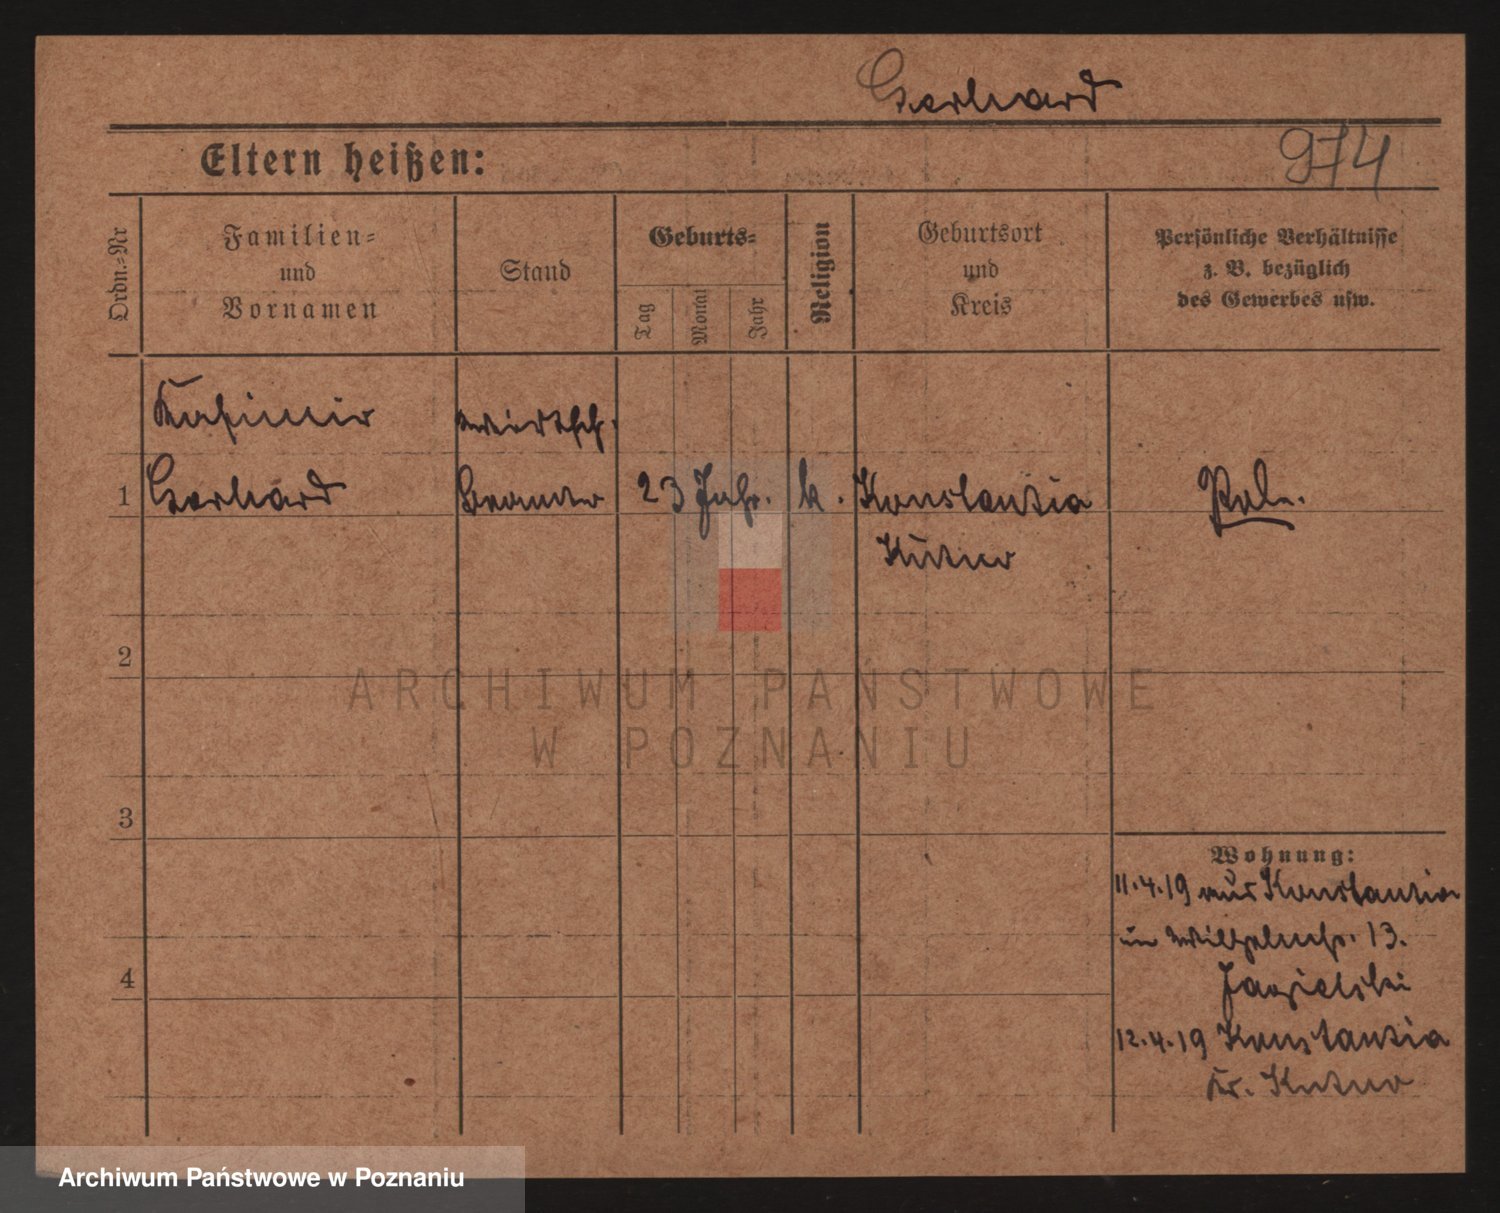 Gerhard
974
Eltern heißen:
Ordn.-Nr
Familien-
und
Vornamen
Stand
Geburts-
Tag
Monat
Jahr
Religion
Geburtsort
und
Kreis
Persönliche Verhältnisse
z. B. bezüglich
des Gewerbes usw.
Kasimir
wirtsch.
1
Gerhard
Beamter
23 Jahr.
k.
Konstantia
Pole.
Kutno
2
ARCHIWUM PAŃSTWOWE
W POZNANIU
3
Wohnung:
11.4.19 aus Konstantia
in Wilhelmstr. 13.
4
12.4.19 Konstantia
Kr. Kutno
Archiwum Państwowe w Poznaniu